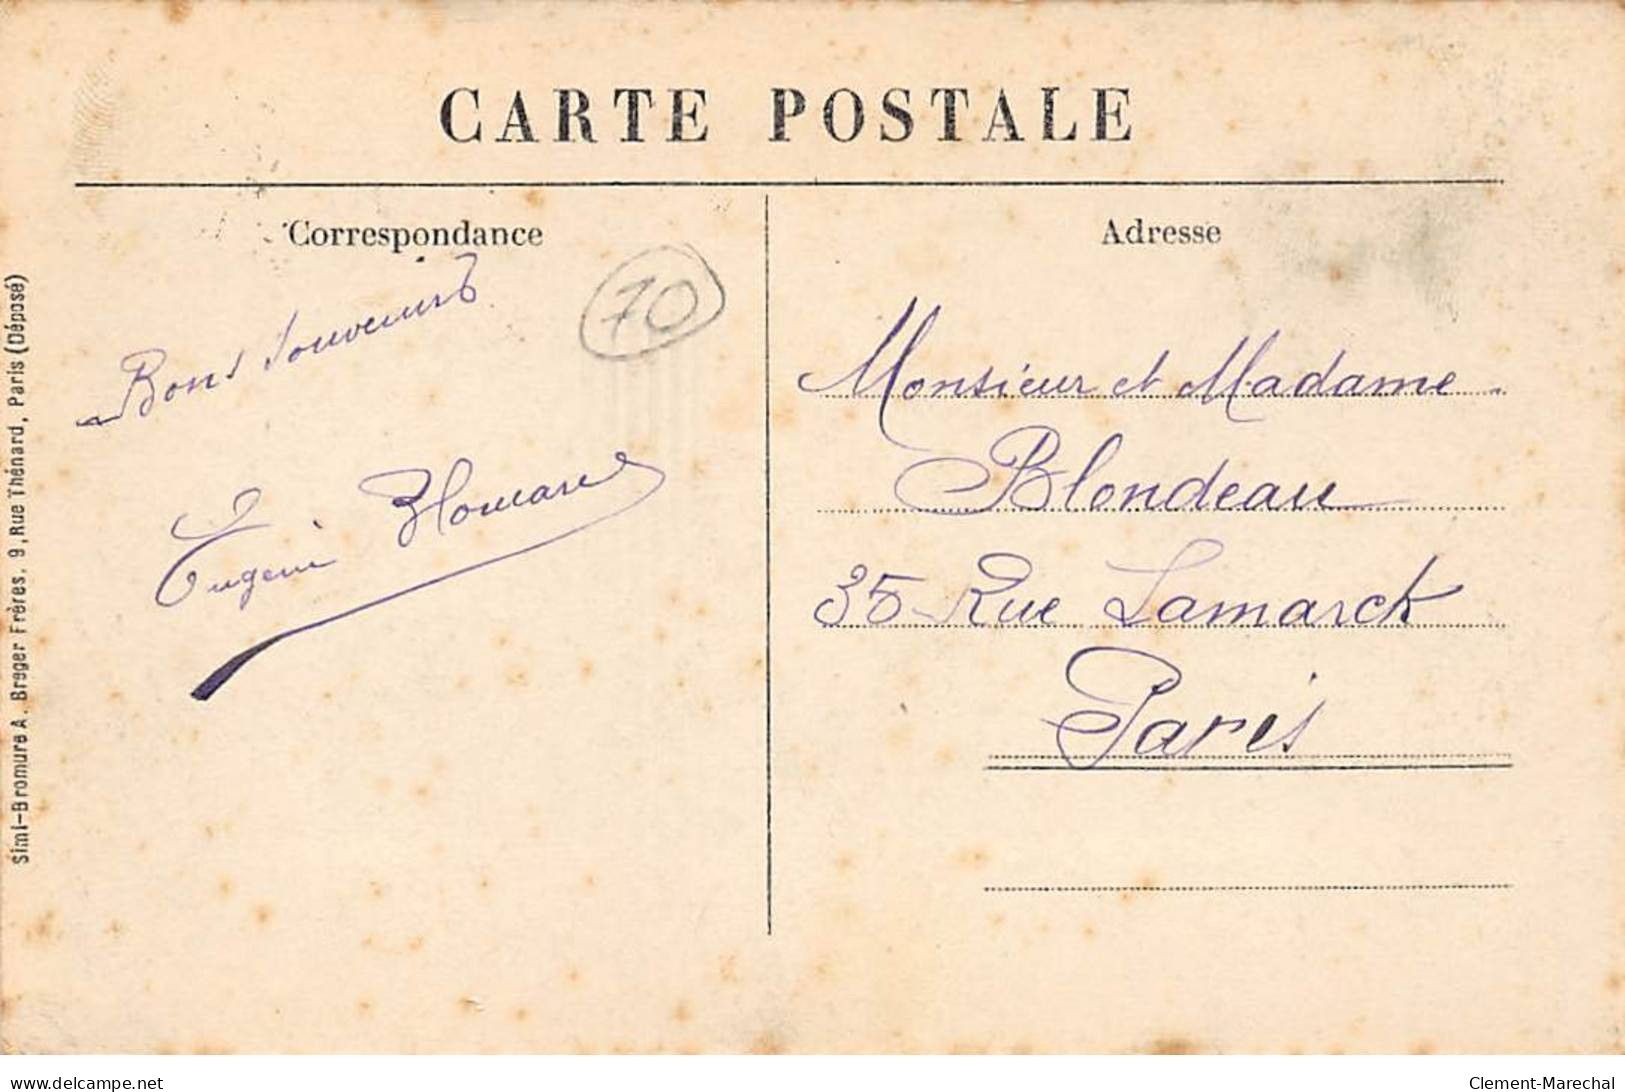 CARTE POSTALE
Correspondance
Bons souvenirs
70
Eugénie
Adresse
Monsieur et Madame
Blondeau
35 Rue Lamarck
Paris
Simi-Bromure A. Breger Frères, 9, Rue Thénard, Paris (Déposé)
www.delcampe.net
Clement-Marechal